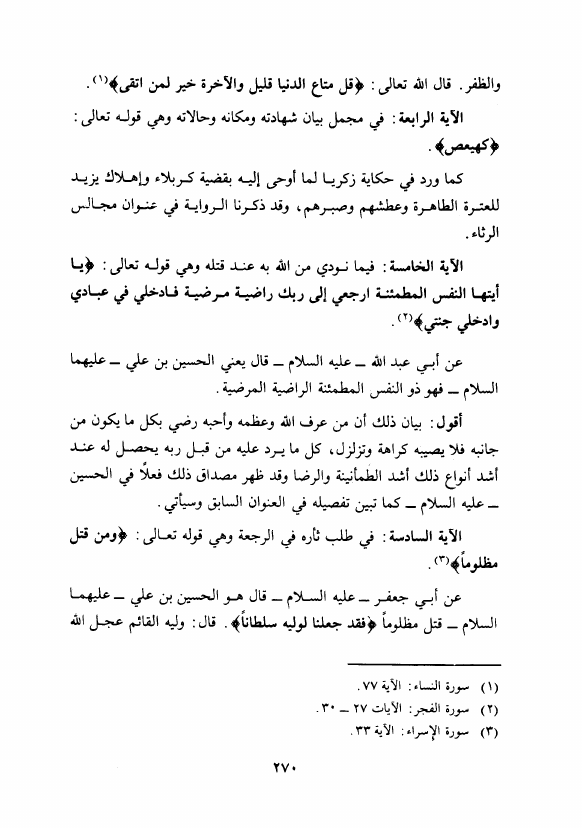 والظفر. قال الله تعالى: ﴿قل متاع الدنيا قليل والآخرة خير لمن اتقى﴾(١).
الآية الرابعة: في مجمل بيان شهادته ومكانه وحالاته وهي قوله تعالى:
﴿كهيعص﴾.
كما ورد في حكاية زكريا لما أوحى إليه بقضية كربلاء وإهلاك يزيد
للعترة الطاهرة وعطشهم وصبرهم، وقد ذكرنا الرواية في عنوان مجالس
الرثاء.
الآية الخامسة: فيما نودي من الله به عند قتله وهي قوله تعالى: ﴿يا
أيتها النفس المطمئنة ارجعي إلى ربك راضية مرضية فادخلي في عبادي
وادخلي جنتي﴾(٢).
عن أبي عبد الله ــ عليه السلام ــ قال يعني الحسين بن علي ــ عليهما
السلام ــ فهو ذو النفس المطمئنة الراضية المرضية.
أقول: بيان ذلك أن من عرف الله وعظمه وأحبه رضي بكل ما يكون من
جانبه فلا يصيبه كراهة وتزلزل، كل ما يرد عليه من قبل ربه يحصل له عند
أشد أنواع ذلك أشد الطمأنينة والرضا وقد ظهر مصداق ذلك فعلاً في الحسين
ــ عليه السلام ــ كما تبين تفصيله في العنوان السابق وسيأتي.
الآية السادسة: في طلب ثأره في الرجعة وهي قوله تعالى: ﴿ومن قتل
مظلوماً﴾(٣).
عن أبي جعفر ــ عليه السلام ــ قال هو الحسين بن علي ــ عليهما
السلام ــ قتل مظلوماً ﴿فقد جعلنا لوليه سلطاناً﴾. قال: وليه القائم عجل الله
(١) سورة النساء: الآية ٧٧.
(٢) سورة الفجر: الآيات ٢٧ ــ ٣٠.
(٣) سورة الإسراء: الآية ٣٣.
٢٧٠